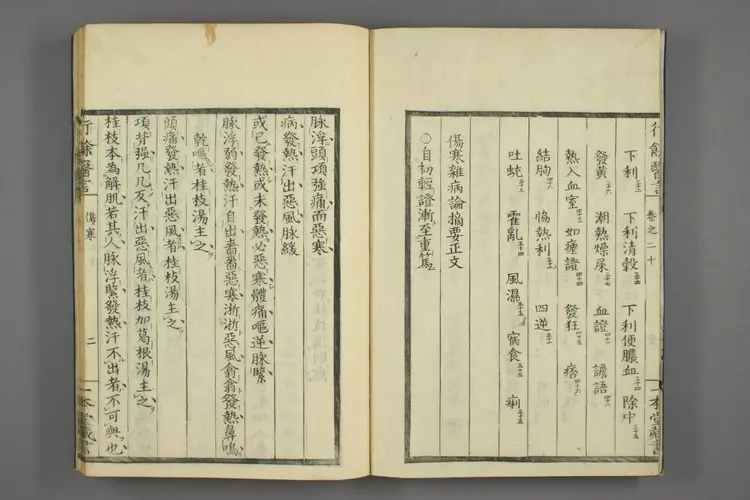 行餘醫言 卷之二十 一本堂藏書
下利 下利清穀 下利便膿血 除中
發黃 潮熱燥屎 血證 譫語
熱入血室 如瘧證 發狂 痞
結胸 協熱利 四逆
吐蚘 霍亂 風濕 宿食 痢
傷寒雜病論摘要正文
○自初輕證漸至重篤
脉浮頭項強痛而惡寒
病發熱汗出惡風脉緩
或已發熱或未發熱必惡寒體痛嘔逆脉緊
脉浮弱發熱汗自出嗇嗇惡寒淅淅惡風翕翕發熱鼻鳴
乾嘔者桂枝湯主之
頭痛發熱汗出惡風者桂枝湯主之
項背强几几反汗出惡風者桂枝加葛根湯主之
桂枝本為解肌若其人脉浮緊發熱汗不出者不可與也
行餘醫言 傷寒 二 一本堂藏書